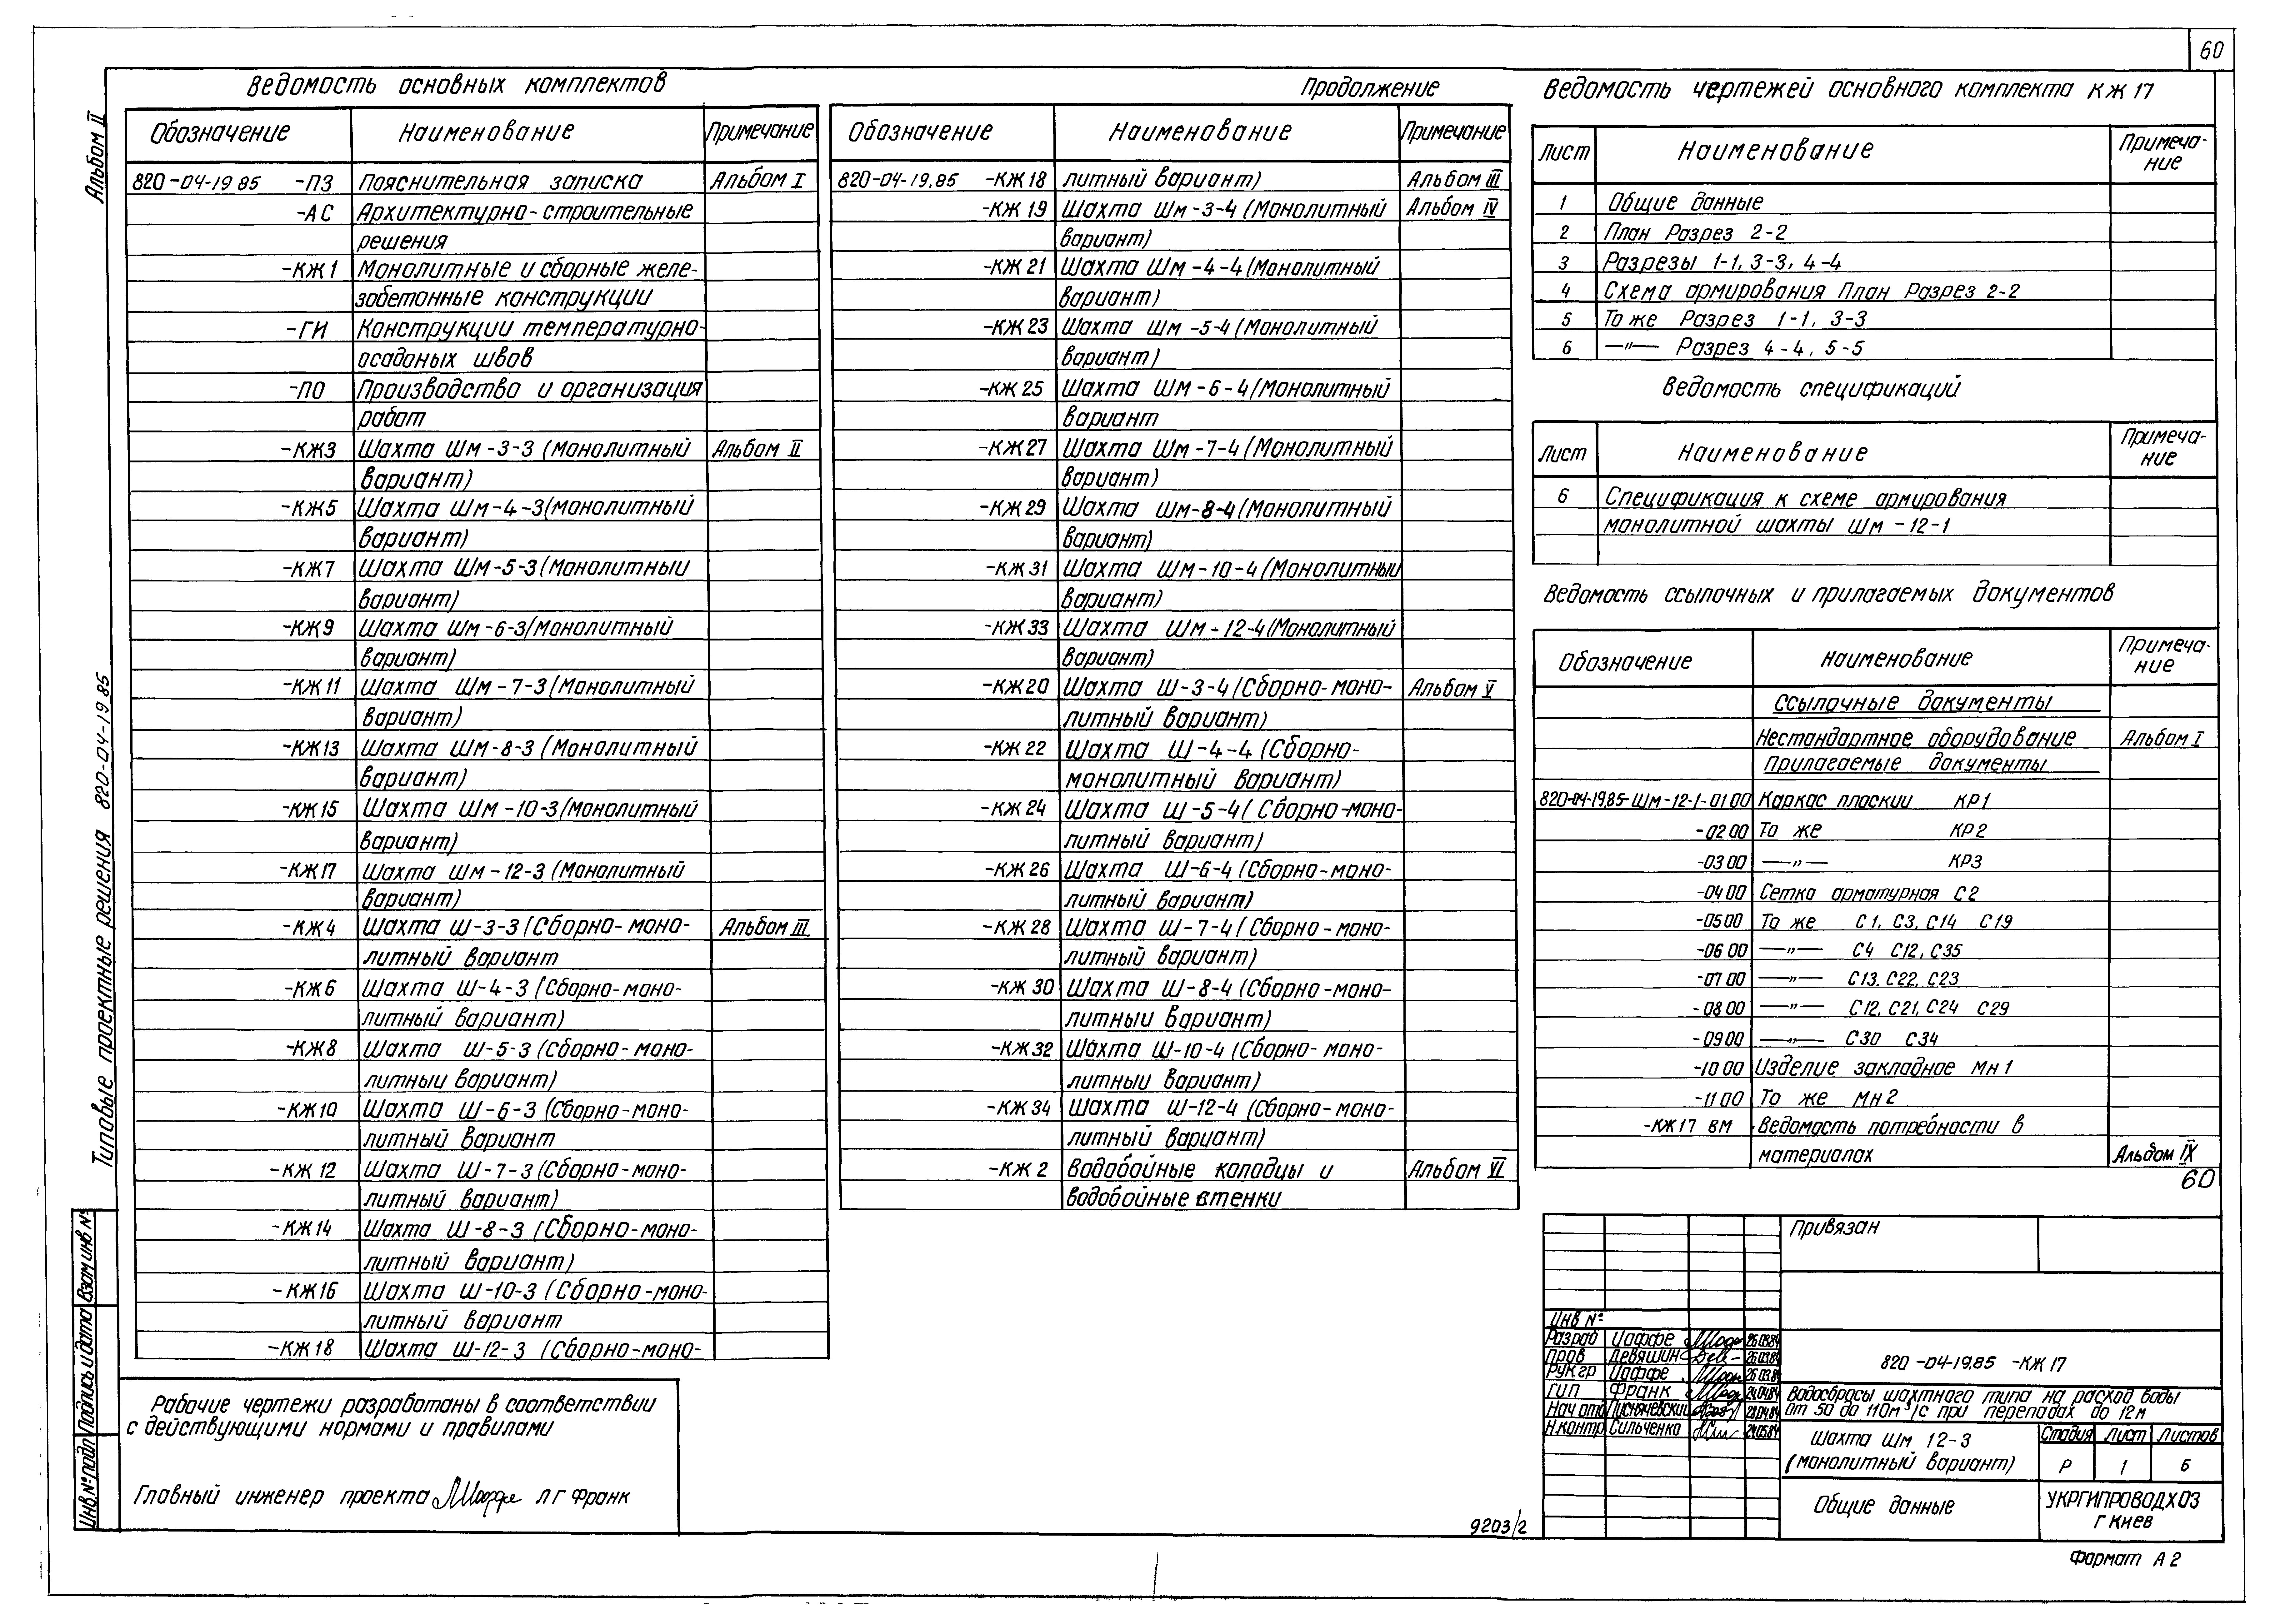 60
Альбом II
Типовые проектные решения 820-04-19.85
Взам инв №
Подпись и дата
Инв.№ подл
Ведомость основных комплектов
Обозначение Наименование Примечание
820-04-19 85 -ПЗ Пояснительная записка Альбом I
-АС Архитектурно-строительные
решения
-КЖ1 Монолитные и сборные желе-
забетонные конструкции
-ГИ Конструкции температурно-
осадоных швов
-ПО Производство и организация
работ
-КЖ3 Шахта Шм-3-3 (Монолитный Альбом II
вариант)
-КЖ5 Шахта Шм-4-3(монолитный
вариант)
-КЖ7 Шахта Шм-5-3(Монолитный
вариант)
-КЖ9 Шахта Шм-6-3(Монолитный
вариант)
-КЖ11 Шахта Шм-7-3(Монолитный
вариант)
-КЖ13 Шахта Шм-8-3 (Монолитный
вариант)
-КЖ15 Шахта Шм-10-3(Монолитный
вариант)
-КЖ17 Шахта Шм-12-3 (Монолитный
вариант)
-КЖ4 Шахта Ш-3-3(Сборно-моно- Альбом III
литный вариант
-КЖ6 Шахта Ш-4-3 (Сборно-моно-
литный вариант)
-КЖ8 Шахта Ш-5-3 (Сборно-моно-
литный вариант)
-КЖ10 Шахта Ш-6-3 (Сборно-моно-
литный вариант
-КЖ12 Шахта Ш-7-3(Сборно-моно-
литный вариант)
-КЖ14 Шахта Ш-8-3 (Сборно-моно-
литный вариант)
-КЖ16 Шахта Ш-10-3 (Сборно-моно-
литный вариант
-КЖ18 Шахта Ш-12-3 (Сборно-моно-
Рабочие чертежи разработаны в соответствии
с действующими нормами и правилами
Главный инженер проекта Л Г Франк
Продолжение
Обозначение Наименование Примечание
820-04-19.85 -КЖ18 литный вариант) Альбом III
-КЖ19 Шахта Шм-3-4 (Монолитный Альбом IV
вариант)
-КЖ21 Шахта Шм-4-4(Монолитный
вариант)
-КЖ23 Шахта Шм-5-4(Монолитный
вариант)
-КЖ25 Шахта Шм-6-4(Монолитный
вариант
-КЖ27 Шахта Шм-7-4(Монолитный
вариант)
-КЖ29 Шахта Шм-8-4(Монолитный
вариант)
-КЖ31 Шахта Шм-10-4(Монолитный
вариант)
-КЖ33 Шахта Шм-12-4(Монолитный
вариант)
-КЖ20 Шахта Ш-3-4(Сборно-моно- Альбом V
литный вариант)
-КЖ22 Шахта Ш-4-4 (Сборно-
монолитный вариант)
-КЖ24 Шахта Ш-5-4( Сборно-моно-
литный вариант)
-КЖ26 Шахта Ш-6-4 (Сборно-моно-
литный вариант)
-КЖ28 Шахта Ш-7-4( Сборно-моно-
литный вариант)
-КЖ30 Шахта Ш-8-4 (Сборно-моно-
литный вариант)
-КЖ32 Шахта Ш-10-4 (Сборно-моно-
литный вариант)
-КЖ34 Шахта Ш-12-4 (Сборно-моно-
литный вариант)
-КЖ2 Водобойные колодцы и Альбом VI
водобойные стенки
9203/2
Ведомость чертежей основного комплекта КЖ17
Лист Наименование Примеча-
ние
1 Общие данные
2 План Разрез 2-2
3 Разрезы 1-1, 3-3, 4-4
4 Схема армирования План Разрез 2-2
5 То же Разрез 1-1, 3-3
6 —"— Разрез 4-4, 5-5
Ведомость спецификаций
Лист Наименование Примеча-
ние
6 Спецификация к схеме армирования
монолитной шахты Шм-12-1
Ведомость ссылочных и прилагаемых документов
Обозначение Наименование Примеча-
ние
Ссылочные документы
Нестандартное оборудование Альбом I
Прилагаемые документы
820-04-19.85-Шм-12-1-01 00 Каркас плоский КР1
-02 00 То же КР2
-03 00 —"— КР3
-04 00 Сетка арматурная С2
-05 00 То же С1, С3, С14 С19
-06 00 —"— С4 С12, С35
-07 00 —"— С13, С22, С23
-08 00 —"— С12, С21, С24 С29
-09 00 —"— С30 С34
-10 00 Изделие закладное Мн1
-11 00 То же Мн2
-КЖ17 ВМ Ведомость потребности в
материалах Альбом IX
60
Привязан
Инв №
Разраб Иаффе 26.03.84
Пров Девяшин 26.03.84
Рук гр Иаффе 26.03.84
ГИП Франк 24.04.84
Нач отд
Н.контр Сильченко
820-04-19.85 -КЖ17
Водосбросы шахтного типа на расход воды
от 50 до 110м³/с при перепадах до 12м
Шахта Шм 12-3
(монолитный вариант)
Стадия Лист Листов
Р 1 6
Общие данные
УКРГИПРОВОДХОЗ
г Киев
Формат А2